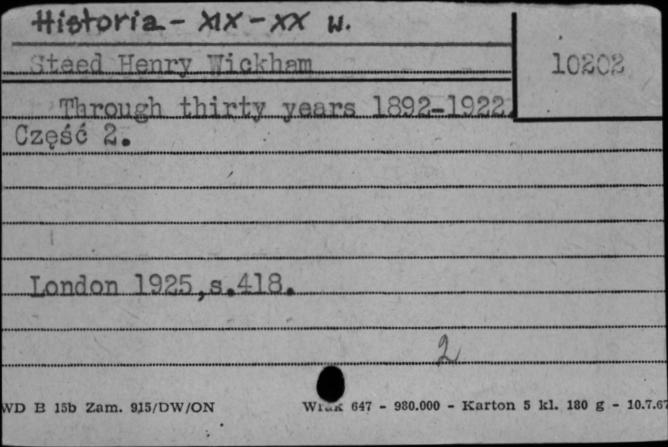 Historia - XIX - XX w.
Steed Henry Wickham
10202
Through thirty years 1892-1922.
Część 2.
London 1925,s.418.
2
WD B 15b Zam. 915/DW/ON
WDiK 647 - 980.000 - Karton 5 kl. 180 g - 10.7.67